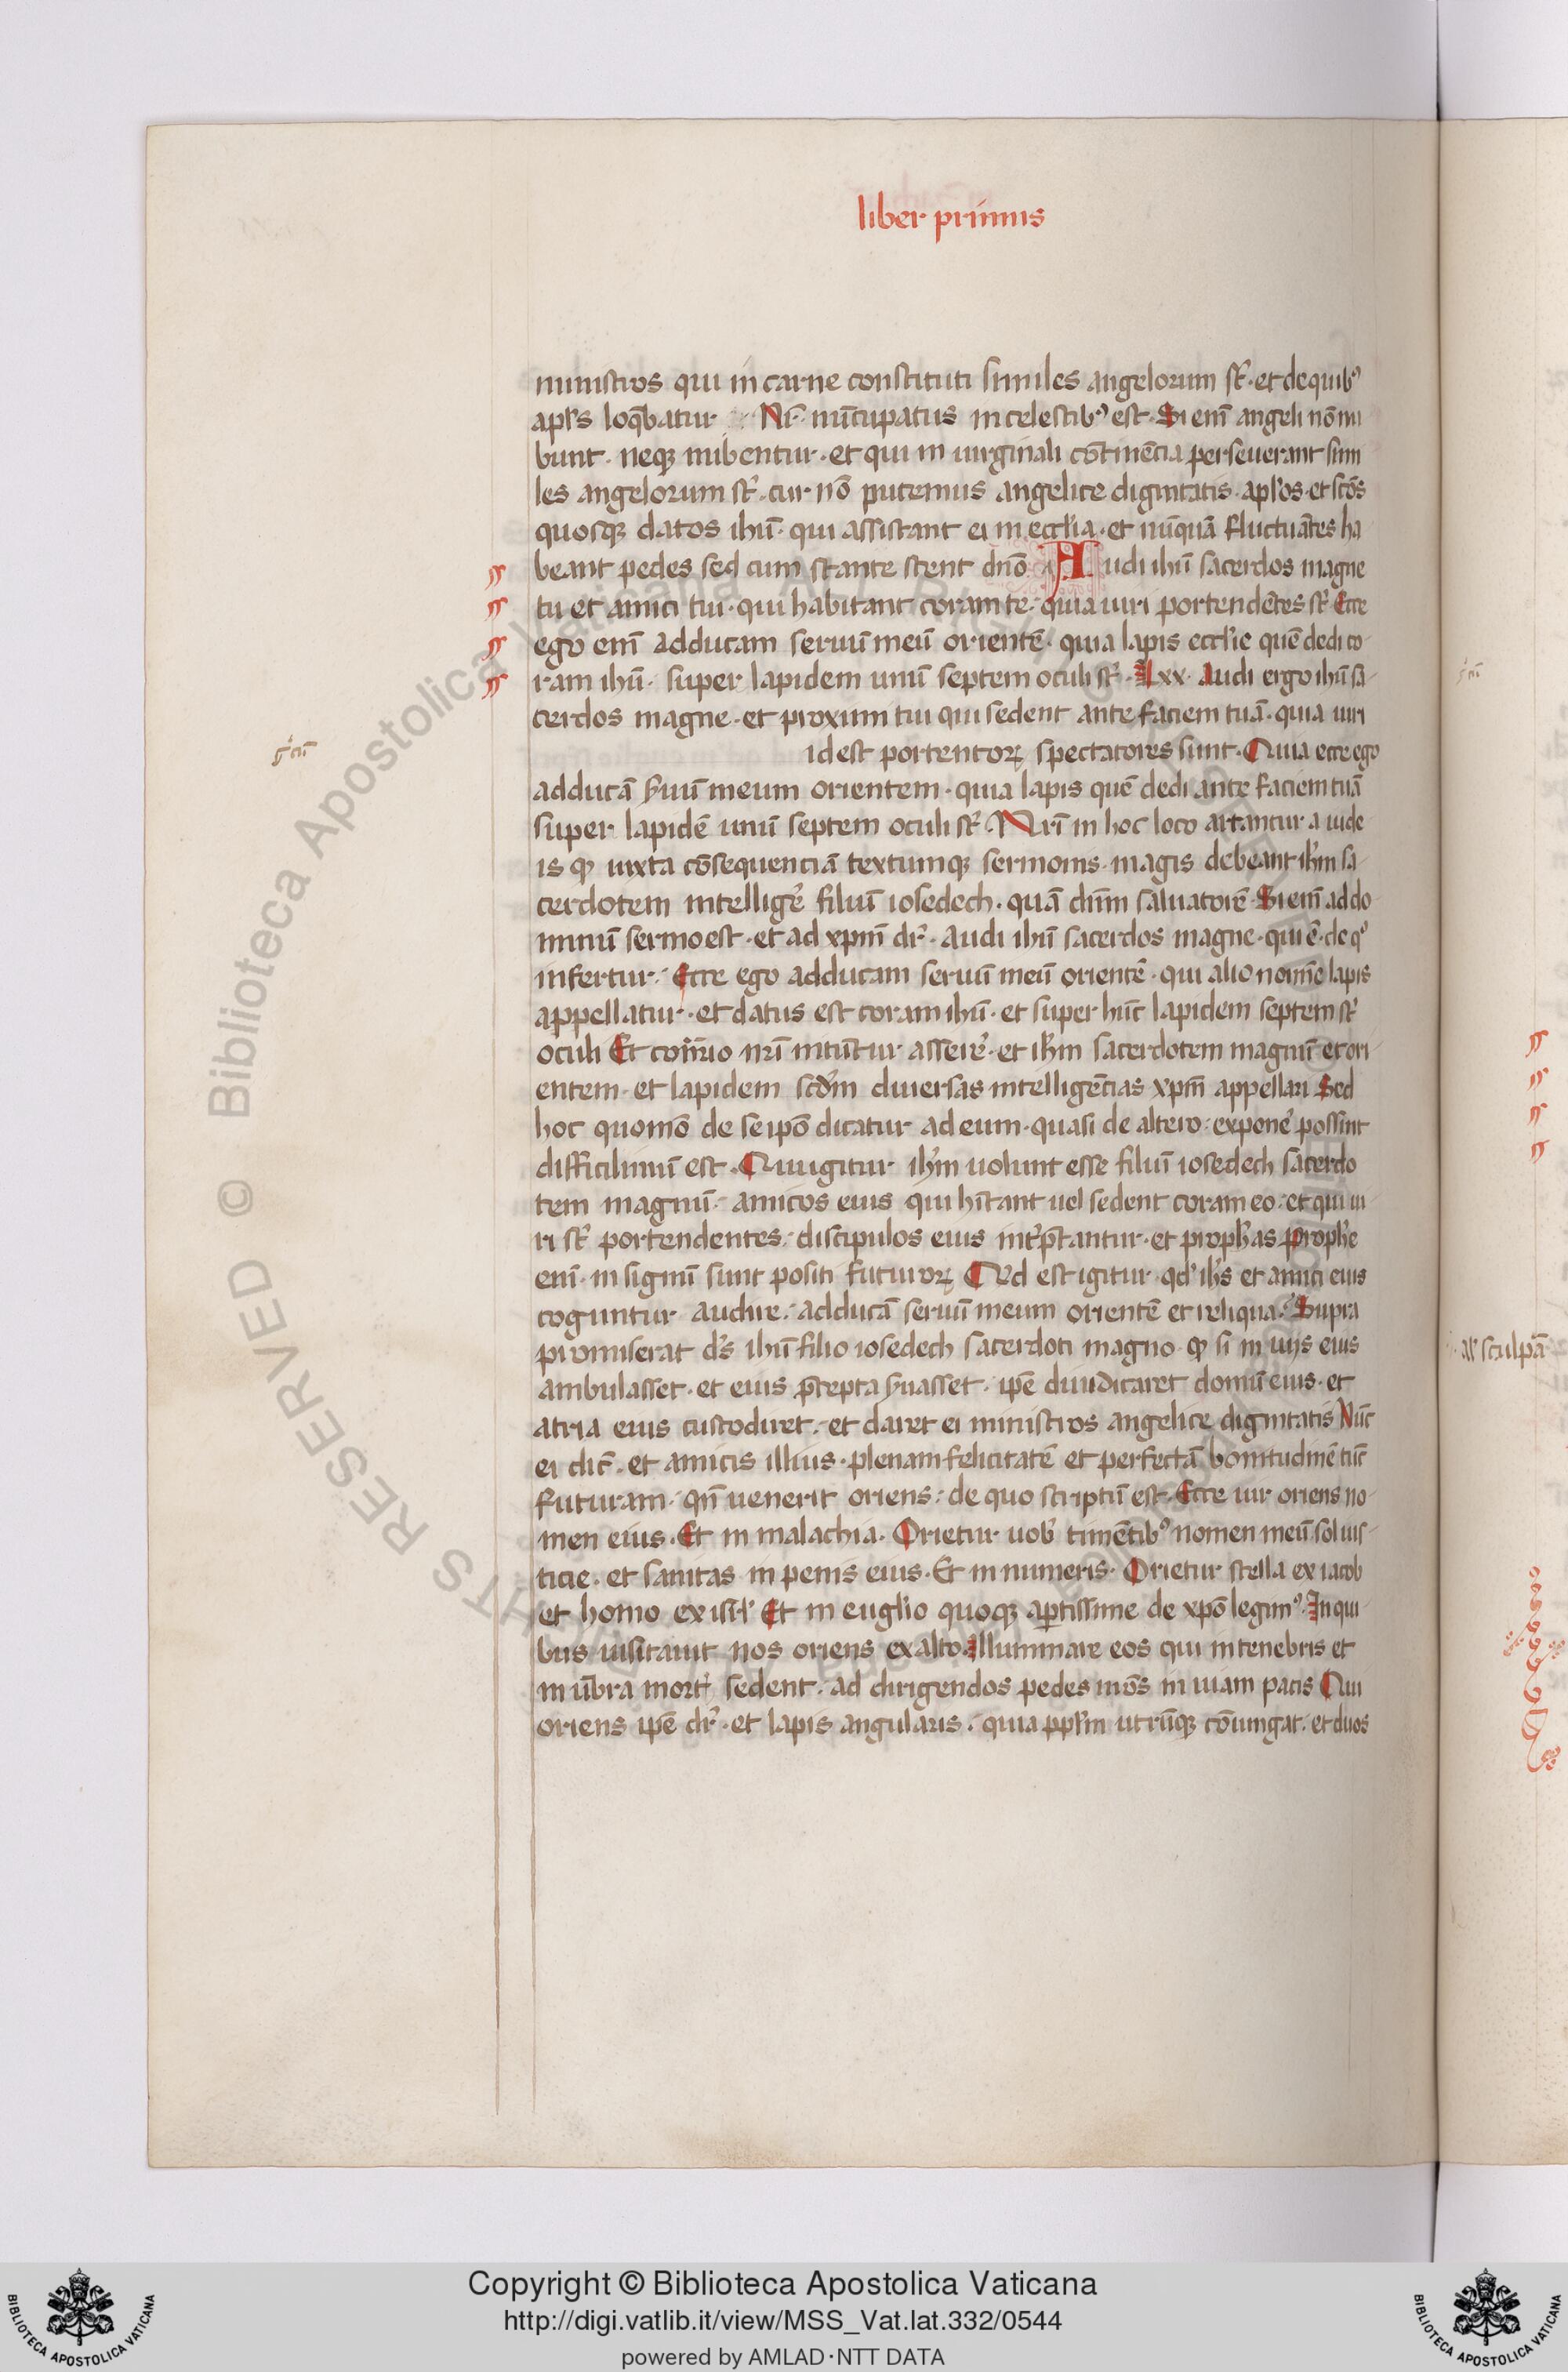 liber primus
ministros qui in carne constituti similes angelorum st̄·et de quib⁹
apl's loq̄batur Nr̄ nūcupatus in celestib⁹ est·Si enī angeli nō nu
bunt·neqꝫ nubentur·et qui in uirginali cōtinēcia perseuerant simi
les angelorum st̄·cur nō putemus angelice dignitatis·apl'os·et scōs
quosqꝫ datos ihū·qui assistant ei in eccl'ia·et nūquā fluctuātes ha
beant pedes sed cum stante stent dn̄o Audi ihū sacerdos magne
tu et amici tui·qui habitant coram te·quia uiri portendētes st̄ Ecce
ego enī adducam seruū meū orientē·quia lapis eccl'ie quē dedi co
ram ihū·super lapidem unū septem oculi st̄·Lxx·Audi ergo ihū sa
cerdos magne·et proximi tui qui sedent ante faciem tuā·quia uiri
id est portentoꝝ spectatores sunt·Quia ecce ego
g̊cū
adducā s̓uū meum orientem·quia lapis quē dedi ante faciem tuā
super lapidē unū septem oculi st̄·Nr̄i in hoc loco artantur a iude
is ꝙ iuxta cōsequenciā textumqꝫ sermonis·magis debeant ih̄m sa
cerdotem intellige᷑ filiū iosedech·quā dn̄m saluatorē Si enī ad do
minū sermo est·et ad xpm̄ dr̄·Audi ihū sacerdos magne·qui ē·de q°
infertur·Ecce ego adducam seruū meū orientē·qui alio noīne lapis
appellatur·et datus est coram ihū·et super hūc lapidem septem st̄
oculi Et cont̄rio nr̄i nitūtur assere᷑·et ih̄m sacerdotem magnū et ori
entem·et lapidem scd̄m diuersas intelligēcias xpm̄ appellari Sed
hoc quomō de se ipō dicatur ad eum·quasi de altero·expone᷑ possint
difficilimū est·Qui igitur ih̄m uolunt esse filiū iosedech sacerdo
tem magnū·amicos eius qui hītant uel sedent coram eo·et qui ui
ri st̄ portendentes·discipulos eius int̓p̄tantur·et proph̄as Proph̄e
enī·in signū sunt positi futuroꝝ Qd est igitur·qd' ih̄s et amici eius
coguntur audire·adducā seruū meum orientē et reliqua·Supra
promiserat d̄s ihū filio iosedech sacerdoti magno·ꝙ si in uijs eius
ambulasset·et eius p̄cepta s̓uasset·ip̄e diiudicaret domū eius·et
atria eius custodiret·et daret ei ministros angelice dignitatis Nūc
ei dic̄·et amicis illius·plenam felicitatē et perfectā bonitudinē tūc
futuram·qn̄ uenerit oriens·de quo scriptū est·Ecce uir oriens no
men eius·Et in malachia·Orietur uob̄ timētib⁹ nomen meū·sol ius
ticie·et sanitas in penis eius·Et in numeris·Orietur stella ex iacob
et homo ex isr̄l' Et in euglīo quoqꝫ ap̄tissime de xpō legim⁹·In qui
bus uisitauit nos oriens ex alto·Illuminare eos qui in tenebris et
in ūbra mort̓ sedent·ad dirigendos pedes nr̄os in uiam pacis Qui
oriens ip̄e dr̄·et lapis angularis·quia ppl'm utrūqꝫ cōiungat·et duos
al' sculpā
Copyright © Biblioteca Apostolica Vaticana
http://digi.vatlib.it/view/MSS_Vat.lat.332/0544
powered by AMLAD·NTT DATA
BIBLIOTECA APOSTOLICA VATICANA
BIBLIOTECA APOSTOLICA VATICANA